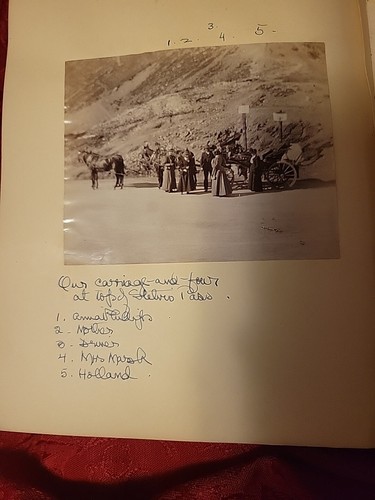 3.
1. 2 4 5-
Our carriage-and-four
at top of Stelvio Pass.
1. Anna Phillips
2- Mother
3- Driver
4. Mrs
5. Holland.